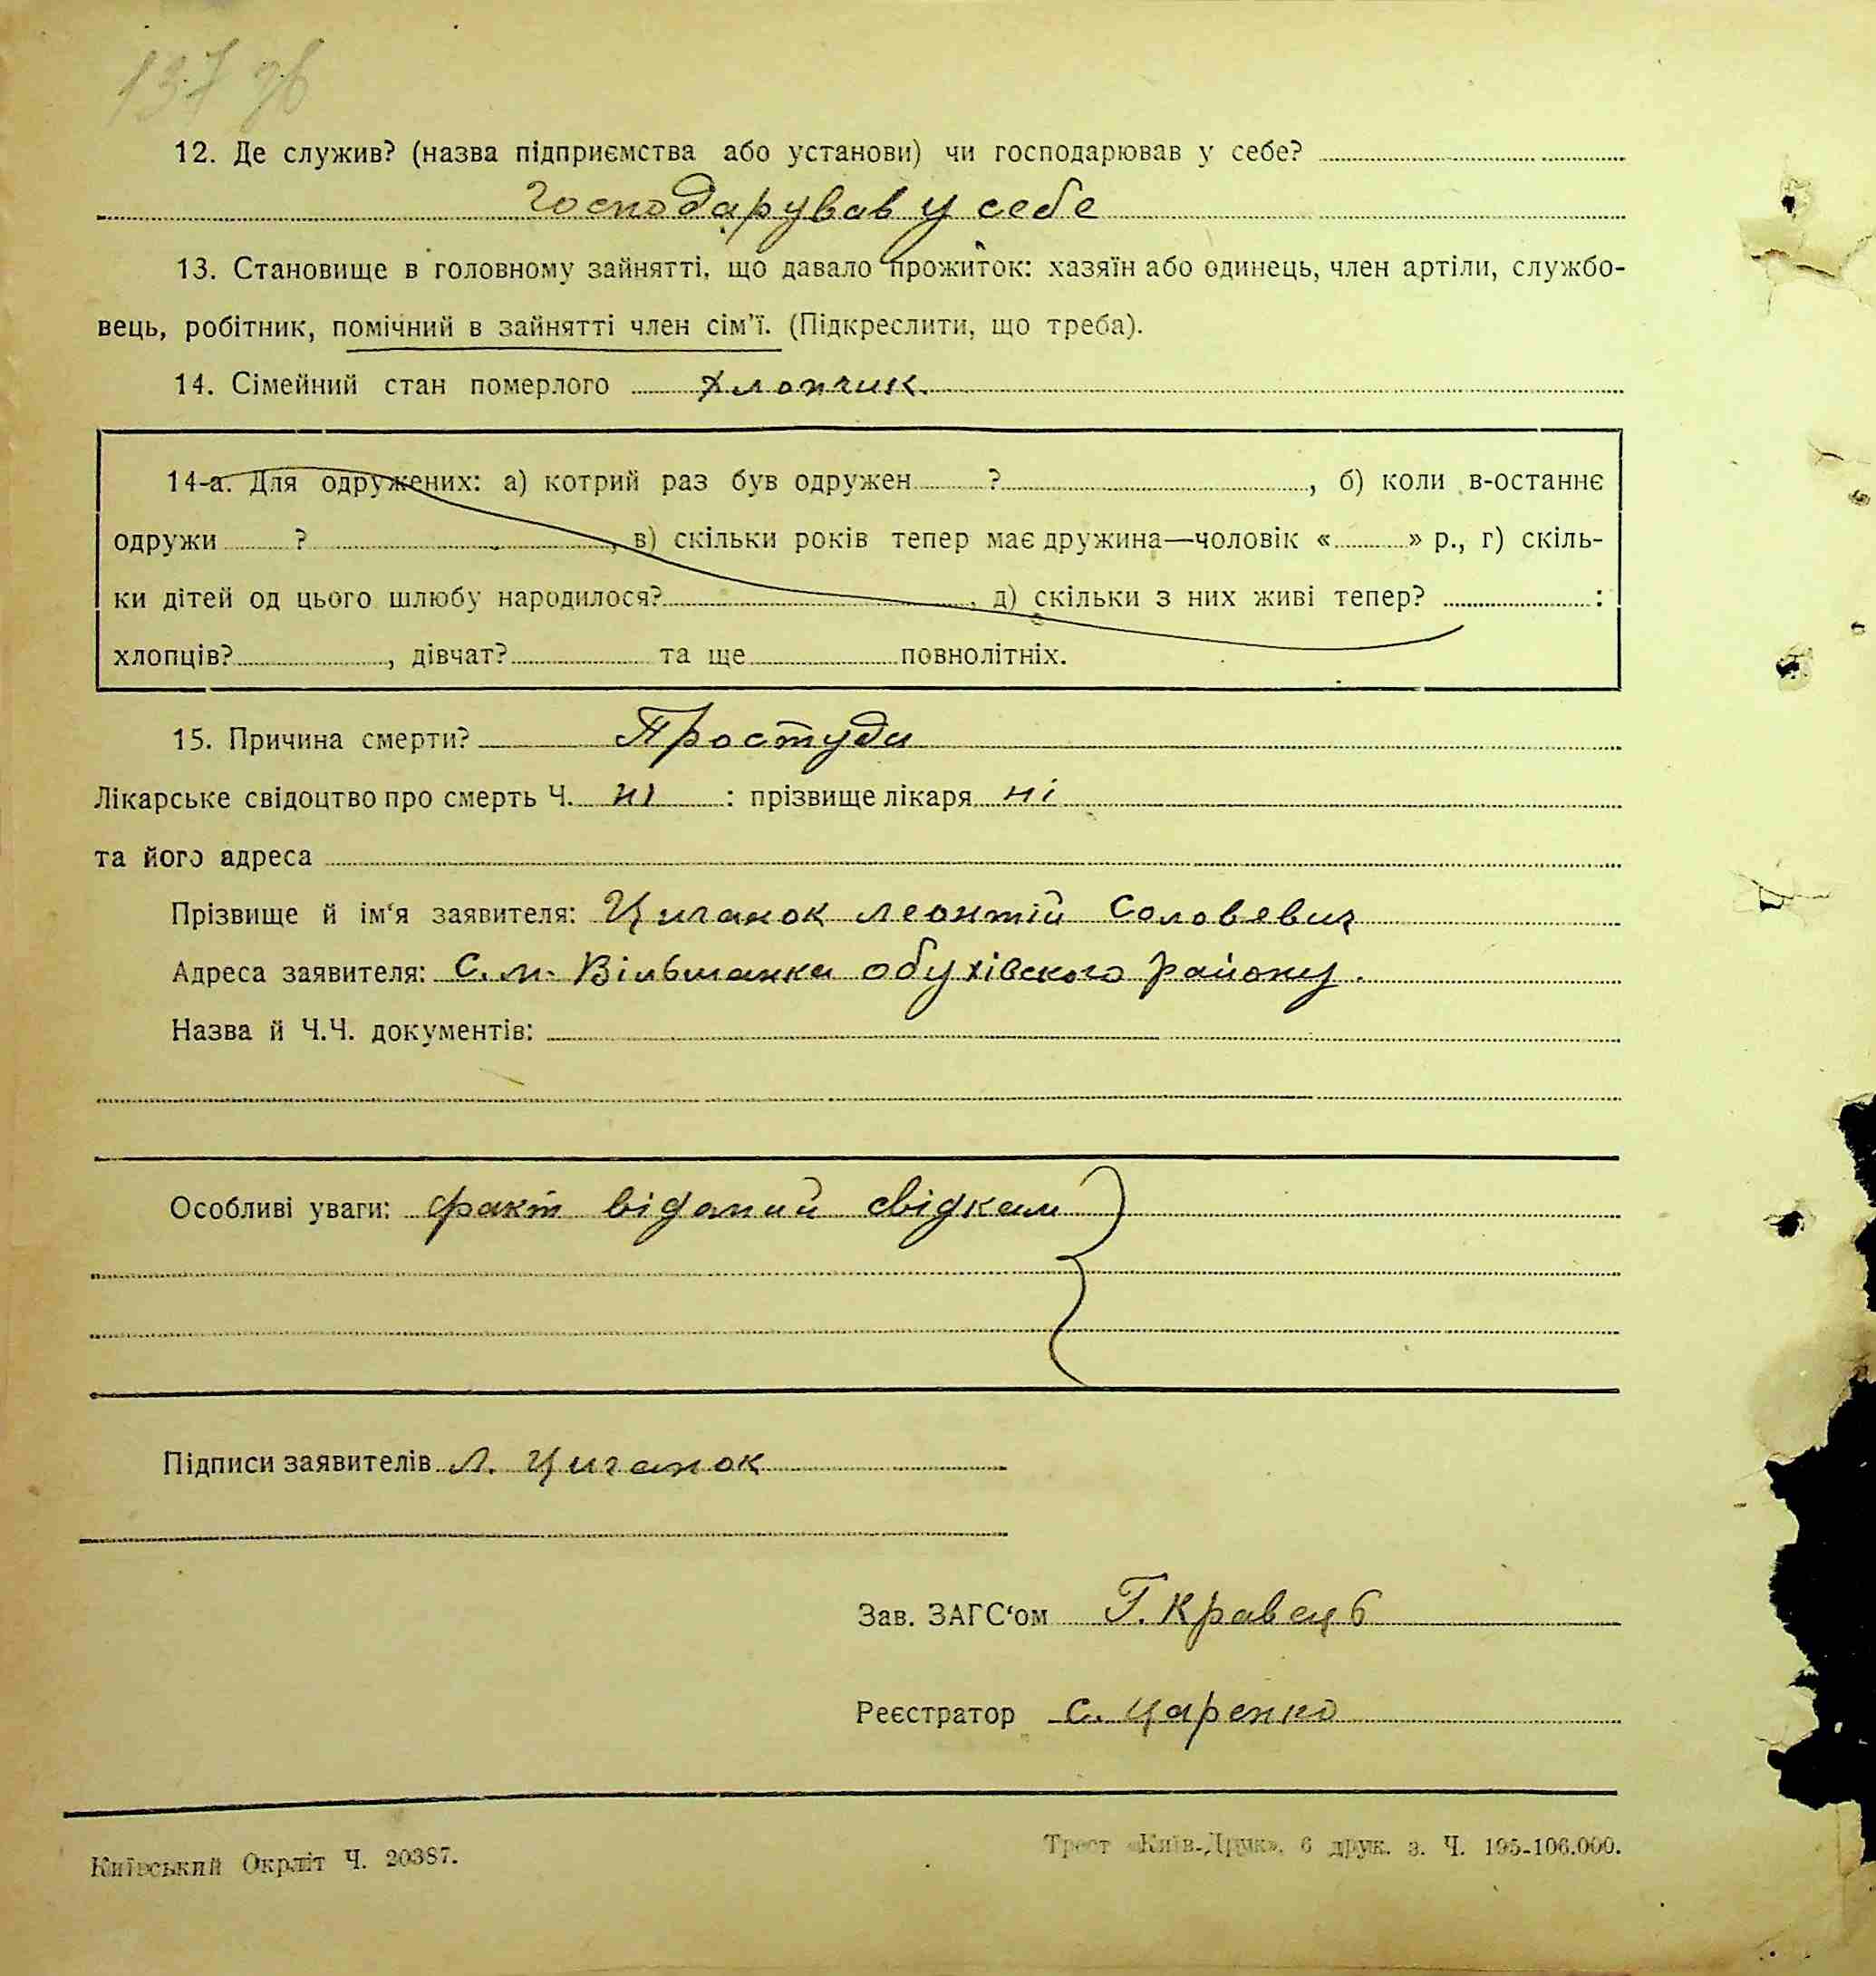 137 зв
12. Де служив? (назва підприємства або установи) чи господарював у себе?
Господарував у себе
13. Становище в головному зайнятті, що давало прожиток: хазяїн або одинець, член артіли, службо-
вець, робітник, помічний в зайнятті член сім'ї. (Підкреслити, що треба).
14. Сімейний стан померлого Хлопчик
14-а. Для одружених: а) котрий раз був одружен ?, б) коли в-останнє
одружи ?, в) скільки років тепер має дружина—чоловік « » р., г) скіль-
ки дітей од цього шлюбу народилося?, д) скільки з них живі тепер? :
хлопців?, дівчат? та ще повнолітніх.
15. Причина смерти? Простуди
Лікарське свідоцтво про смерть Ч. ні : прізвище лікаря ні
та його адреса
Прізвище й ім'я заявителя: Циганок леонтій Соловєвич
Адреса заявителя: С. м. Вільшанка обухівского району.
Назва й Ч.Ч. документів:
Особливі уваги: факт відомий свідкам
Підписи заявителів Л. Циганок
Зав. ЗАГС'ом Г. Кравець
Реєстратор С. Царенко
Київський Окрліт Ч. 20387.
Трест «Київ-Друк», 6 друк. з. Ч. 195-106.000.